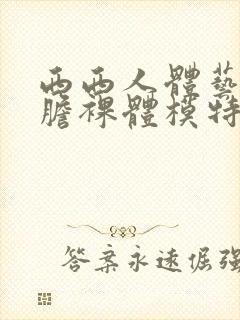 西西人體藝
膽裸體模特
答案永遠倔强